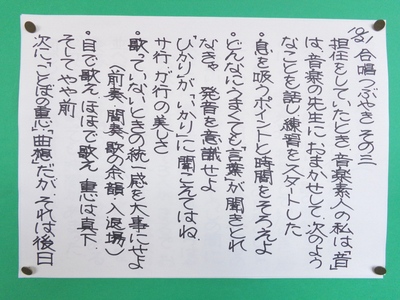 合唱つぶやき その三
担任をしていたとき、音楽素人の私は、「音」
は、音楽の先生におまかせして、次のよう
なことを話し練習をスタートした
・息を吸うポイントと時間をそろえよ
・どんなにうまくても「言葉」が聞きとれ
なきゃ 発音を意識せよ
「ひかり」が「いかり」に聞こえてはね、
サ行 ガ行の美しさ
・歌っていないときの統一感を大事にせよ
(前奏 間奏 歌の余韻・入退場)
・目で歌え ほほで歌え 重心は真下
そして やや前
次に、「ことばの重心」「曲想」だが、それは後日